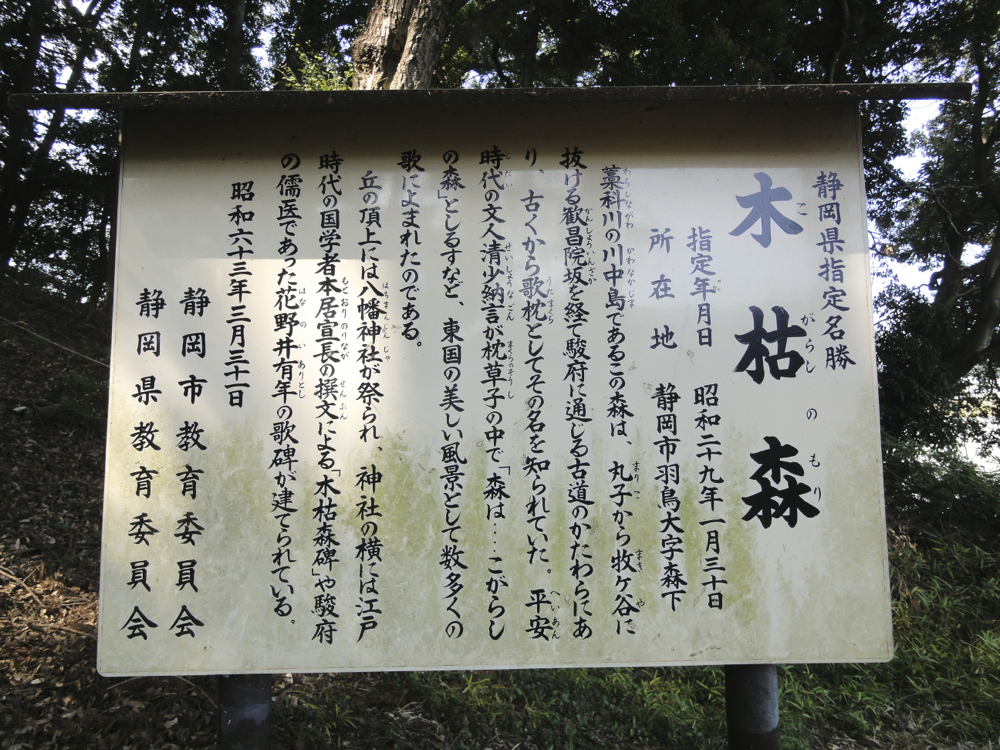 静岡県指定名勝
木枯森
指定年月日　昭和二十九年一月三十日
所在地　静岡市羽鳥大字森下
藁科川の川中島であるこの森は、丸子から牧ケ谷に
抜ける歓昌院坂を経て駿府に通じる古道のかたわらにあ
り、古くから歌枕としてその名を知られていた。平安
時代の文人清少納言が枕草子の中で「森は…こがらし
の森」としるすなど、東国の美しい風景として数多くの
歌によまれたのである。
丘の頂上には八幡神社が祭られ、神社の横には江戸
時代の国学者本居宣長の撰文による「木枯森碑」や駿府
の儒医であった花野井有年の歌碑が建てられている。
昭和六十三年三月三十一日
静岡市教育委員会
静岡県教育委員会